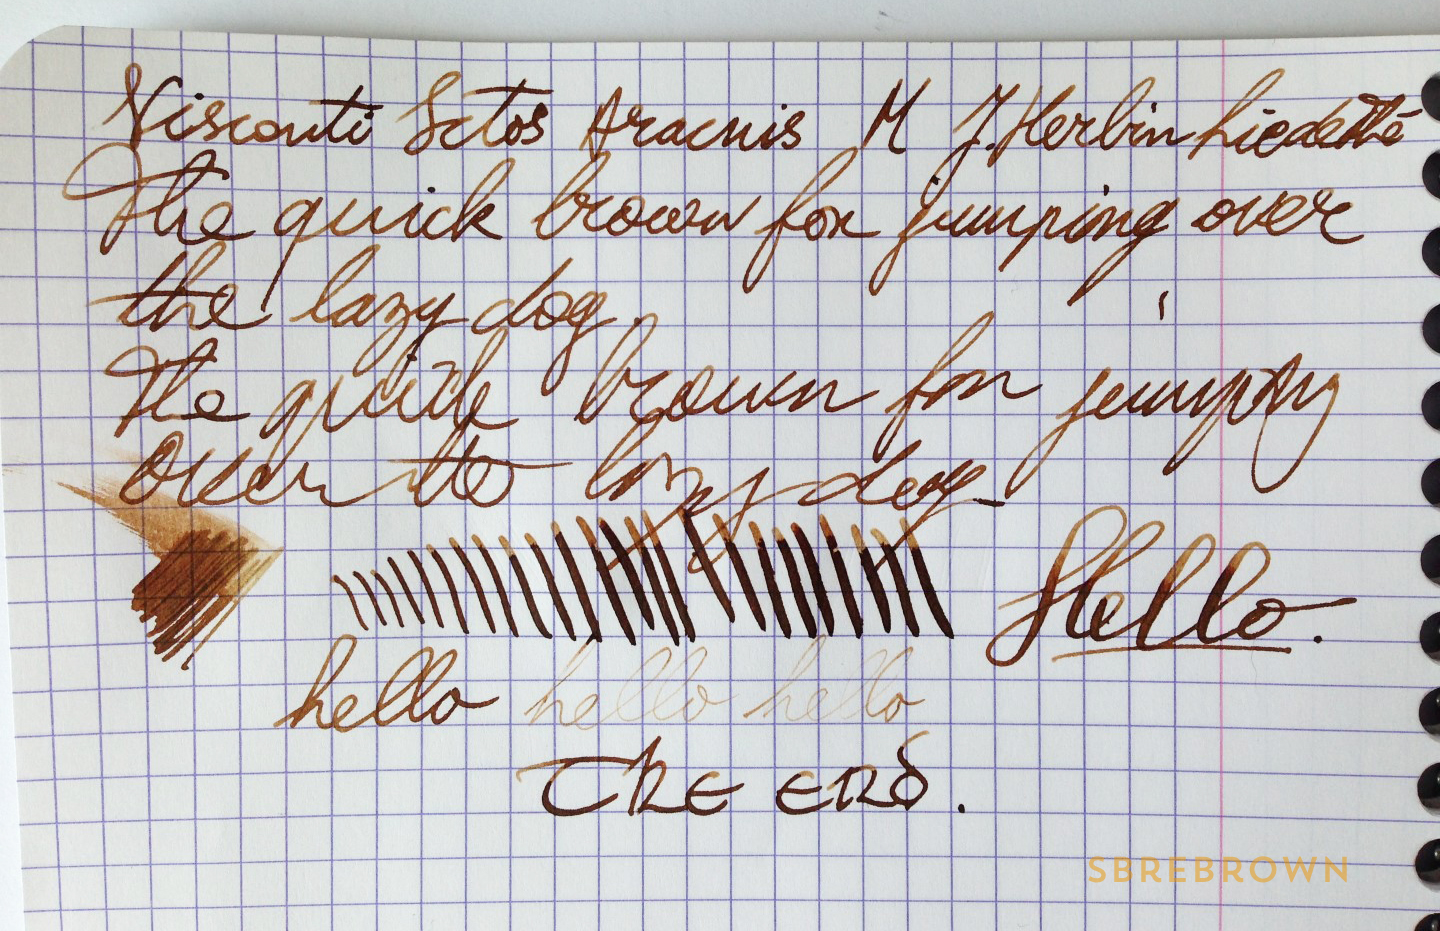 Visconti Sctos Aracnis M J. Herbin lie de thé
The quick brown fox jumping over
the lazy dog.
The quick brown fox jumping
over the lazy dog
Hello.
hello hello hello
The end.
SBREBROWN